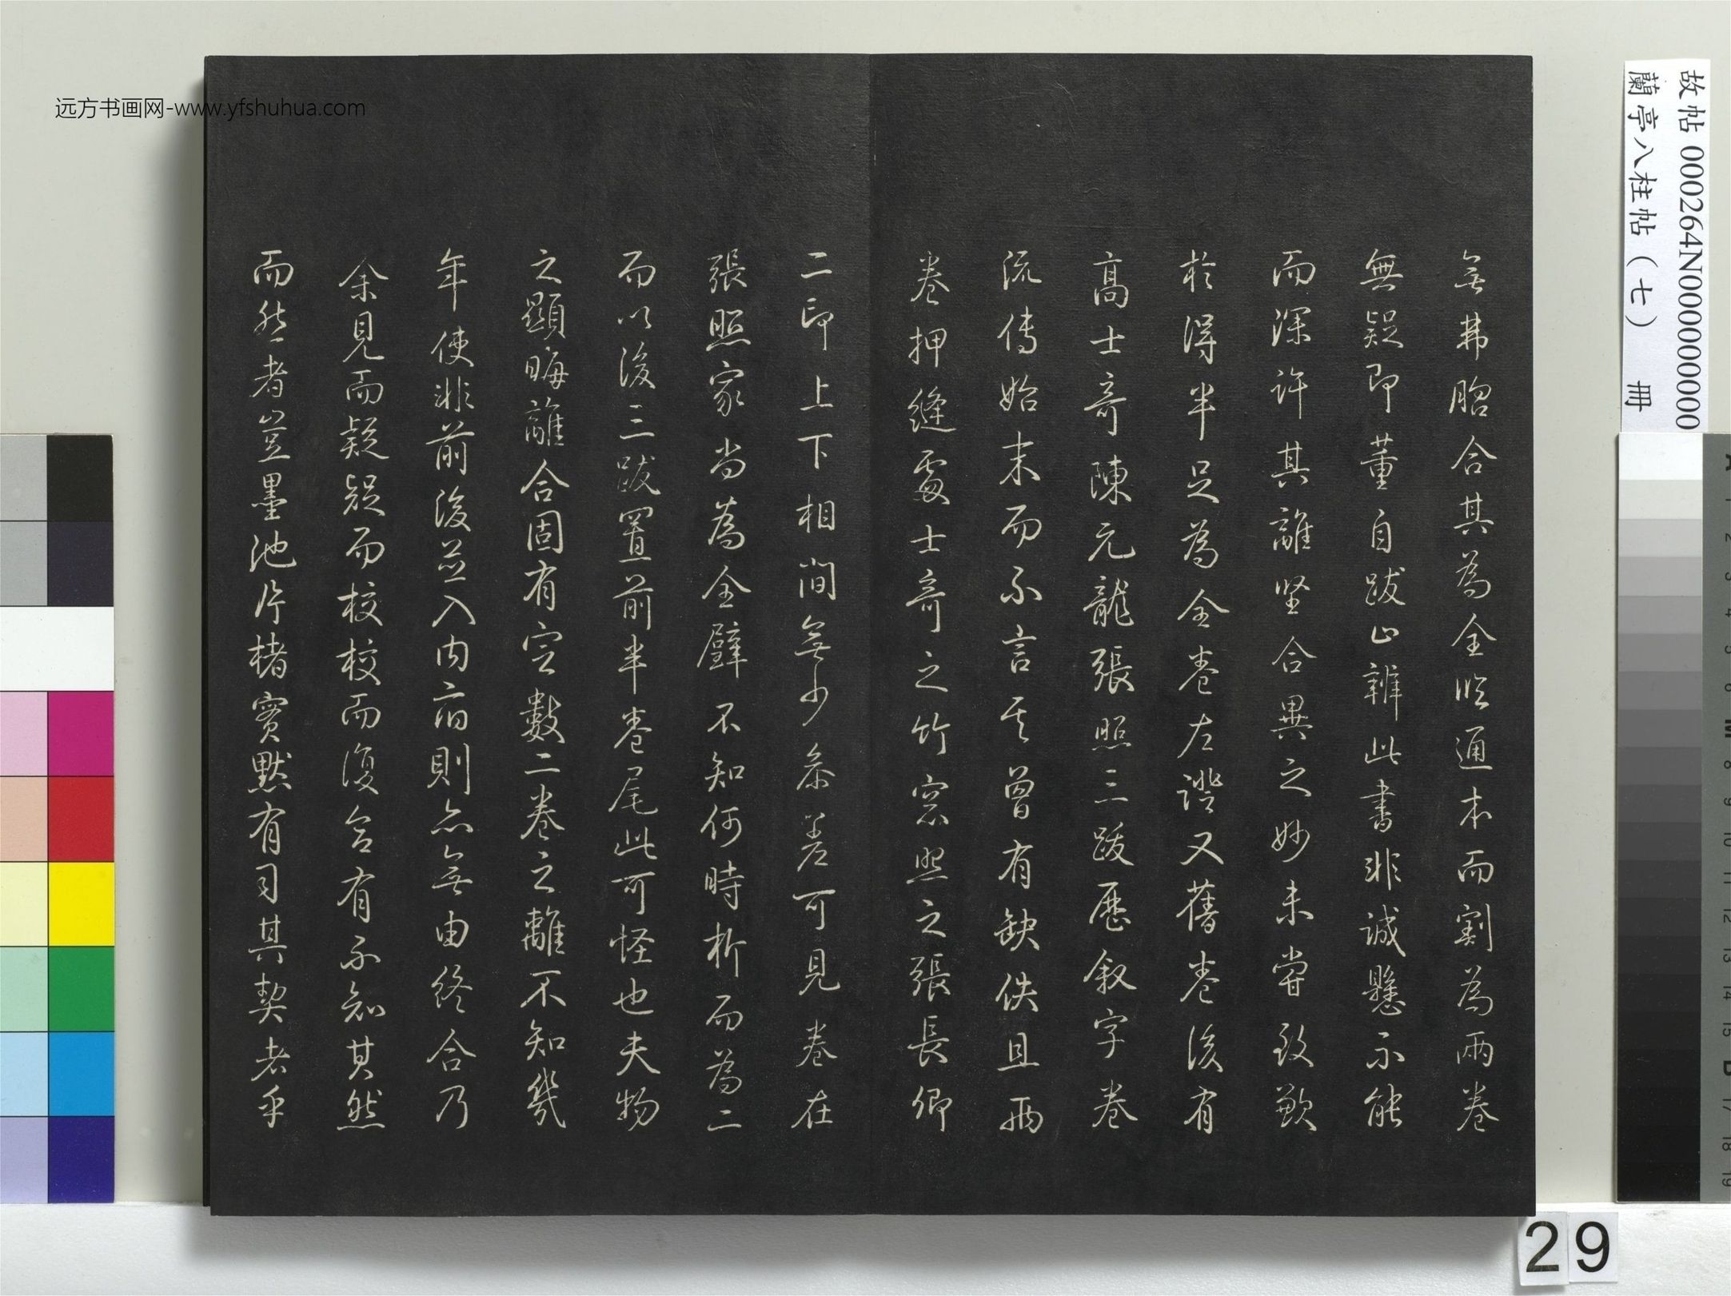 無弗脗合其為全臨通本而割為兩卷
無疑即董自跋止辨此書非誠懸不能
而深許其離堅合異之妙未嘗致歉
於得半足為全卷左證又舊卷後有
高士奇陳元龍張照三跋歷叙字卷
流傳始末而不言其曾有缺佚且兩
卷押縫處士奇之竹窓照之張長卿
二印上下相間無少參差可見卷在
張照家尚為全璧不知何時析而為二
而以後三跋置前半卷尾此可怪也夫物
之顯晦離合固有定數二卷之離不知幾
年使非前後並入内府則亦無由終合乃
余見而疑疑而校校而復合有不知其然
而然者豈墨池片楮寶默有司其契者乎
故帖 000264N000000000
蘭亭八柱帖（七） 冊
远方书画网-www.yfshuhua.com
29